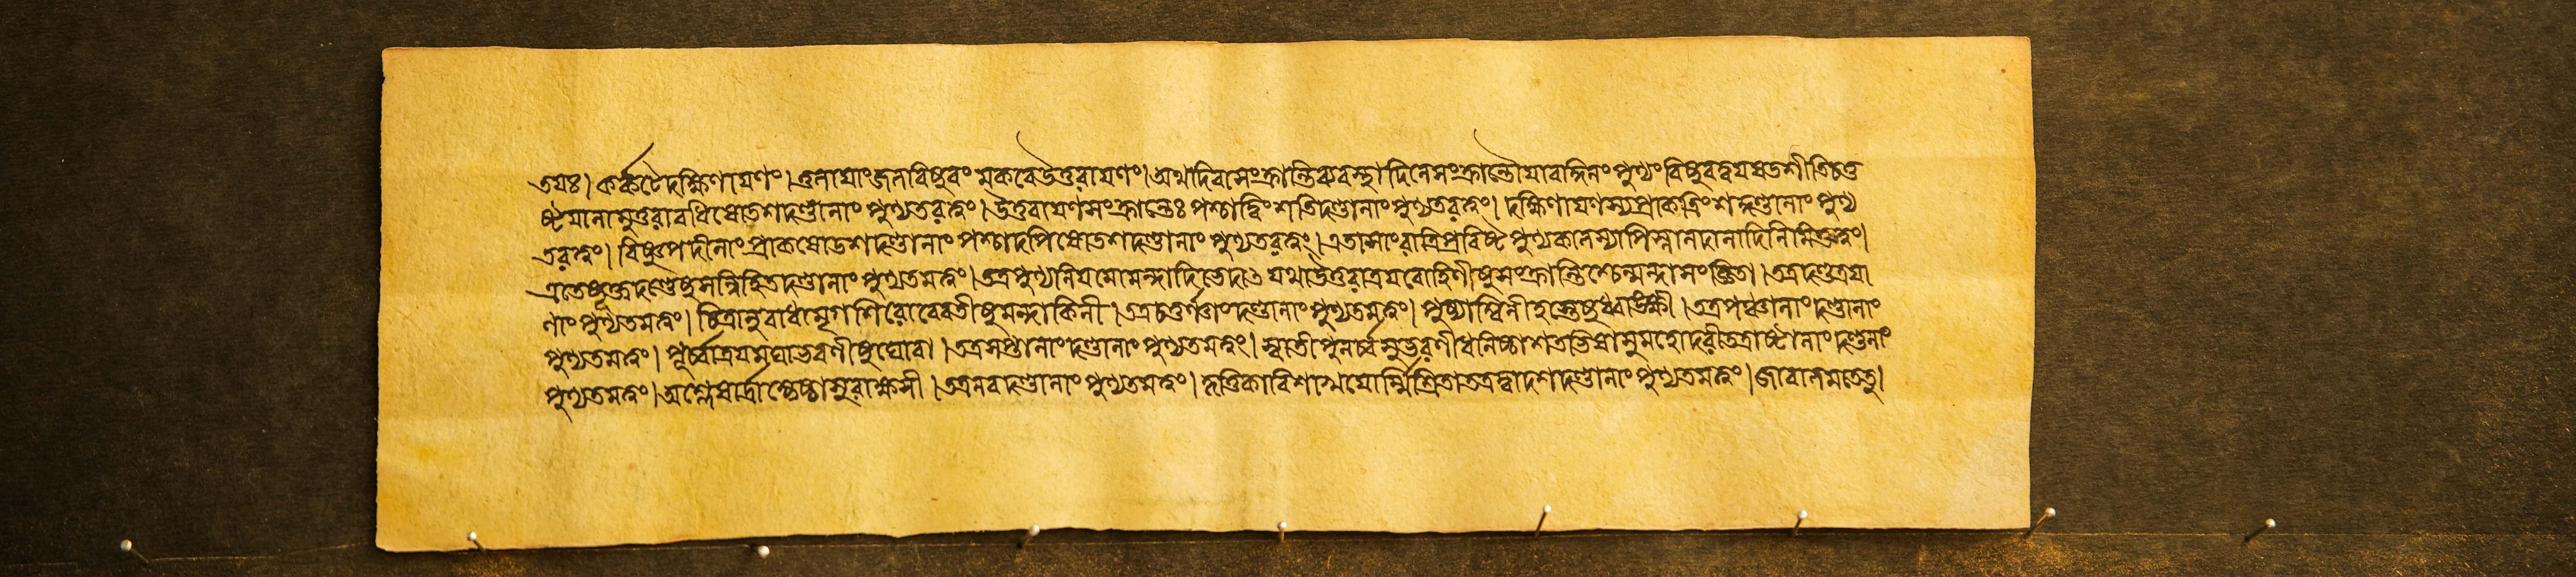 তয়ঃ। কর্ক্কটেদক্ষিণায়ণং। তুলায়াংজলবিষুবং মকরেউত্তরায়ণং। অথদিবাসংক্রান্তিব্যবস্থা দিনেসংক্রান্তৌযাবদ্দিনং পুণ্যং বিষুবদ্বয়ষডশীতিচতু
ষ্টয়ানামুত্তরাবধিষোডশদণ্ডানাং পুণ্যতরত্বং। উত্তরায়ণসংক্রান্তেঃ পশ্চাদ্বিংশতিদণ্ডানাং পুণ্যতরত্বং। দক্ষিণায়ণস্যপ্রাকত্রিংশদ্দণ্ডানাং পুণ্য
তরত্বং। বিষ্ণুপদীনাং প্রাকষোডশদণ্ডানাং পশ্চাদপিষোডশদণ্ডানাং পুণ্যতরত্বং। এতাসাংরাত্রিপ্রবিষ্ট পুণ্যকালস্যাপিস্নানদানাদিনিমিত্তত্বং।
এতেষূক্তদণ্ডেষুসন্নিহিতদণ্ডানাং পুণ্যতমত্বং। তত্রপুণ্যনিয়মোমন্দাদিভেদাৎ যথাউত্তরাত্রয়রোহিণীষুসংক্রান্তিশ্চেন্মন্দাসংজ্ঞিতা। তত্রদণ্ডত্রয়া
ণাং পুণ্যতমত্বং। চিত্রানুরাধামৃগশিরোরেবতীষুমন্দাকিনী। তত্রচতুর্ণাংদণ্ডানাং পুণ্যতমত্বং। পুষ্যাশ্বিনীহস্তেষুধ্বাঙ্ক্ষী। তত্রপঞ্চানাংদণ্ডানাং
পুণ্যতমত্বং। পূর্ব্বাত্রয়মঘাভরণীষুঘোরা। তত্রসপ্তানাংদণ্ডানাং পুণ্যতমত্বং। স্বাতীপুনর্ব্বসুশ্রবণাধনিষ্ঠাশতভিষাসুমহোদরীতত্রাষ্টানাং দণ্ডানাং
পুণ্যতমত্বং। অশ্লেষার্দ্রাজ্যেষ্ঠামূলাসুরাক্ষসী। তত্রনবদণ্ডানাং পুণ্যতমত্বং। কৃত্তিকাবিশাখয়োর্ম্মিশ্রিতাতত্রদ্বাদশদণ্ডানাং পুণ্যতমত্বং।